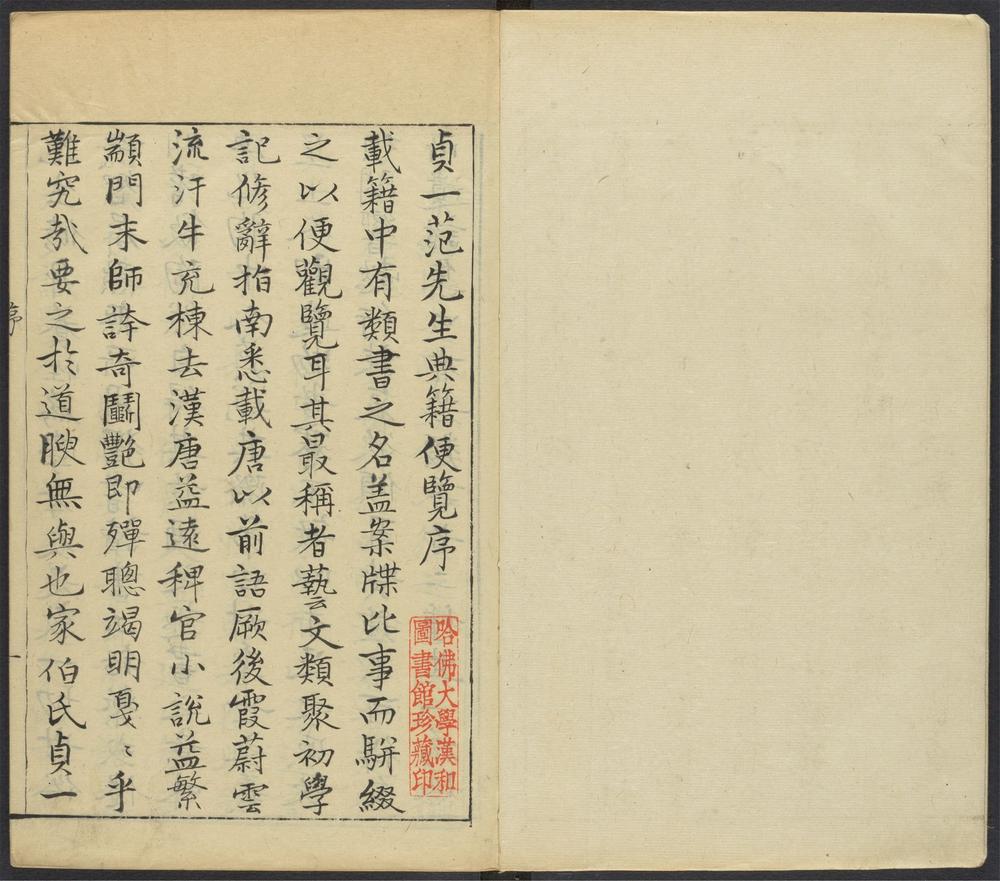 貞一范先生典籍便覽序
哈佛大學漢和
圖書館珍藏印
載籍中有類書之名盖案牒比事而駢綴
之以便觀覽耳其最稱者藝文類聚初學
記脩辭指南悉載唐以前語厥後霞蔚雲
流汗牛充棟去漢唐益遠稗官小說益繁
顓門末師誇奇鬭艷即殫聰竭明戛〻乎
難究哉要之於道腴無與也家伯氏貞一
序
一